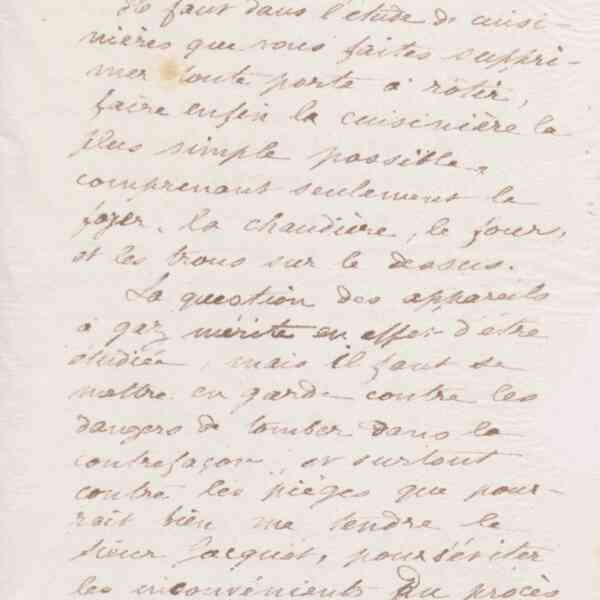 Il faut dans l'étude de cuisi-
nières que vous faites suppri-
mer toute porte à rôtir,
faire enfin la cuisinière la
plus simple possible,
comprenant seulement le
foyer, la chaudière, le four,
et les trous sur le dessus.
La question des appareils
à gaz mérite en effet d'être
étudiée, mais il faut se
mettre en garde contre les
dangers de tomber dans la
contrefaçon, et surtout
contre les pièges que pour-
rait bien me tendre le
sieur Jacquet, pour éviter
les inconvénients du procès